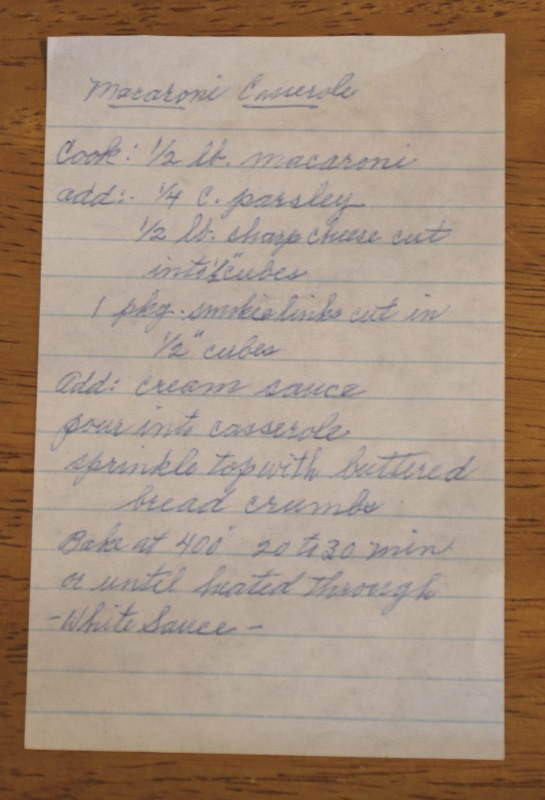 Macaroni Casserole
Cook: 1/2 lb. macaroni
add:- 1/4 C. parsley
1/2 lb. sharp cheese cut
into 1/2" cubes
1 pkg. smokie links cut in
1/2" cubes
Add: cream sauce
pour into casserole
sprinkle top with buttered
bread crumbs
Bake at 400° 20 to 30 min
or until heated through
-White Sauce-